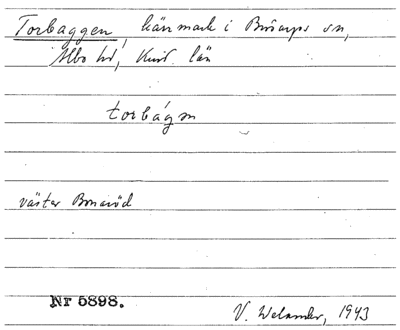 Torbaggen, kärrmark i Brösarps sn,
Albo hd, Krist. län
torbágɛn
väster Bnaröd
Nr 5898.
V. Welander, 1943